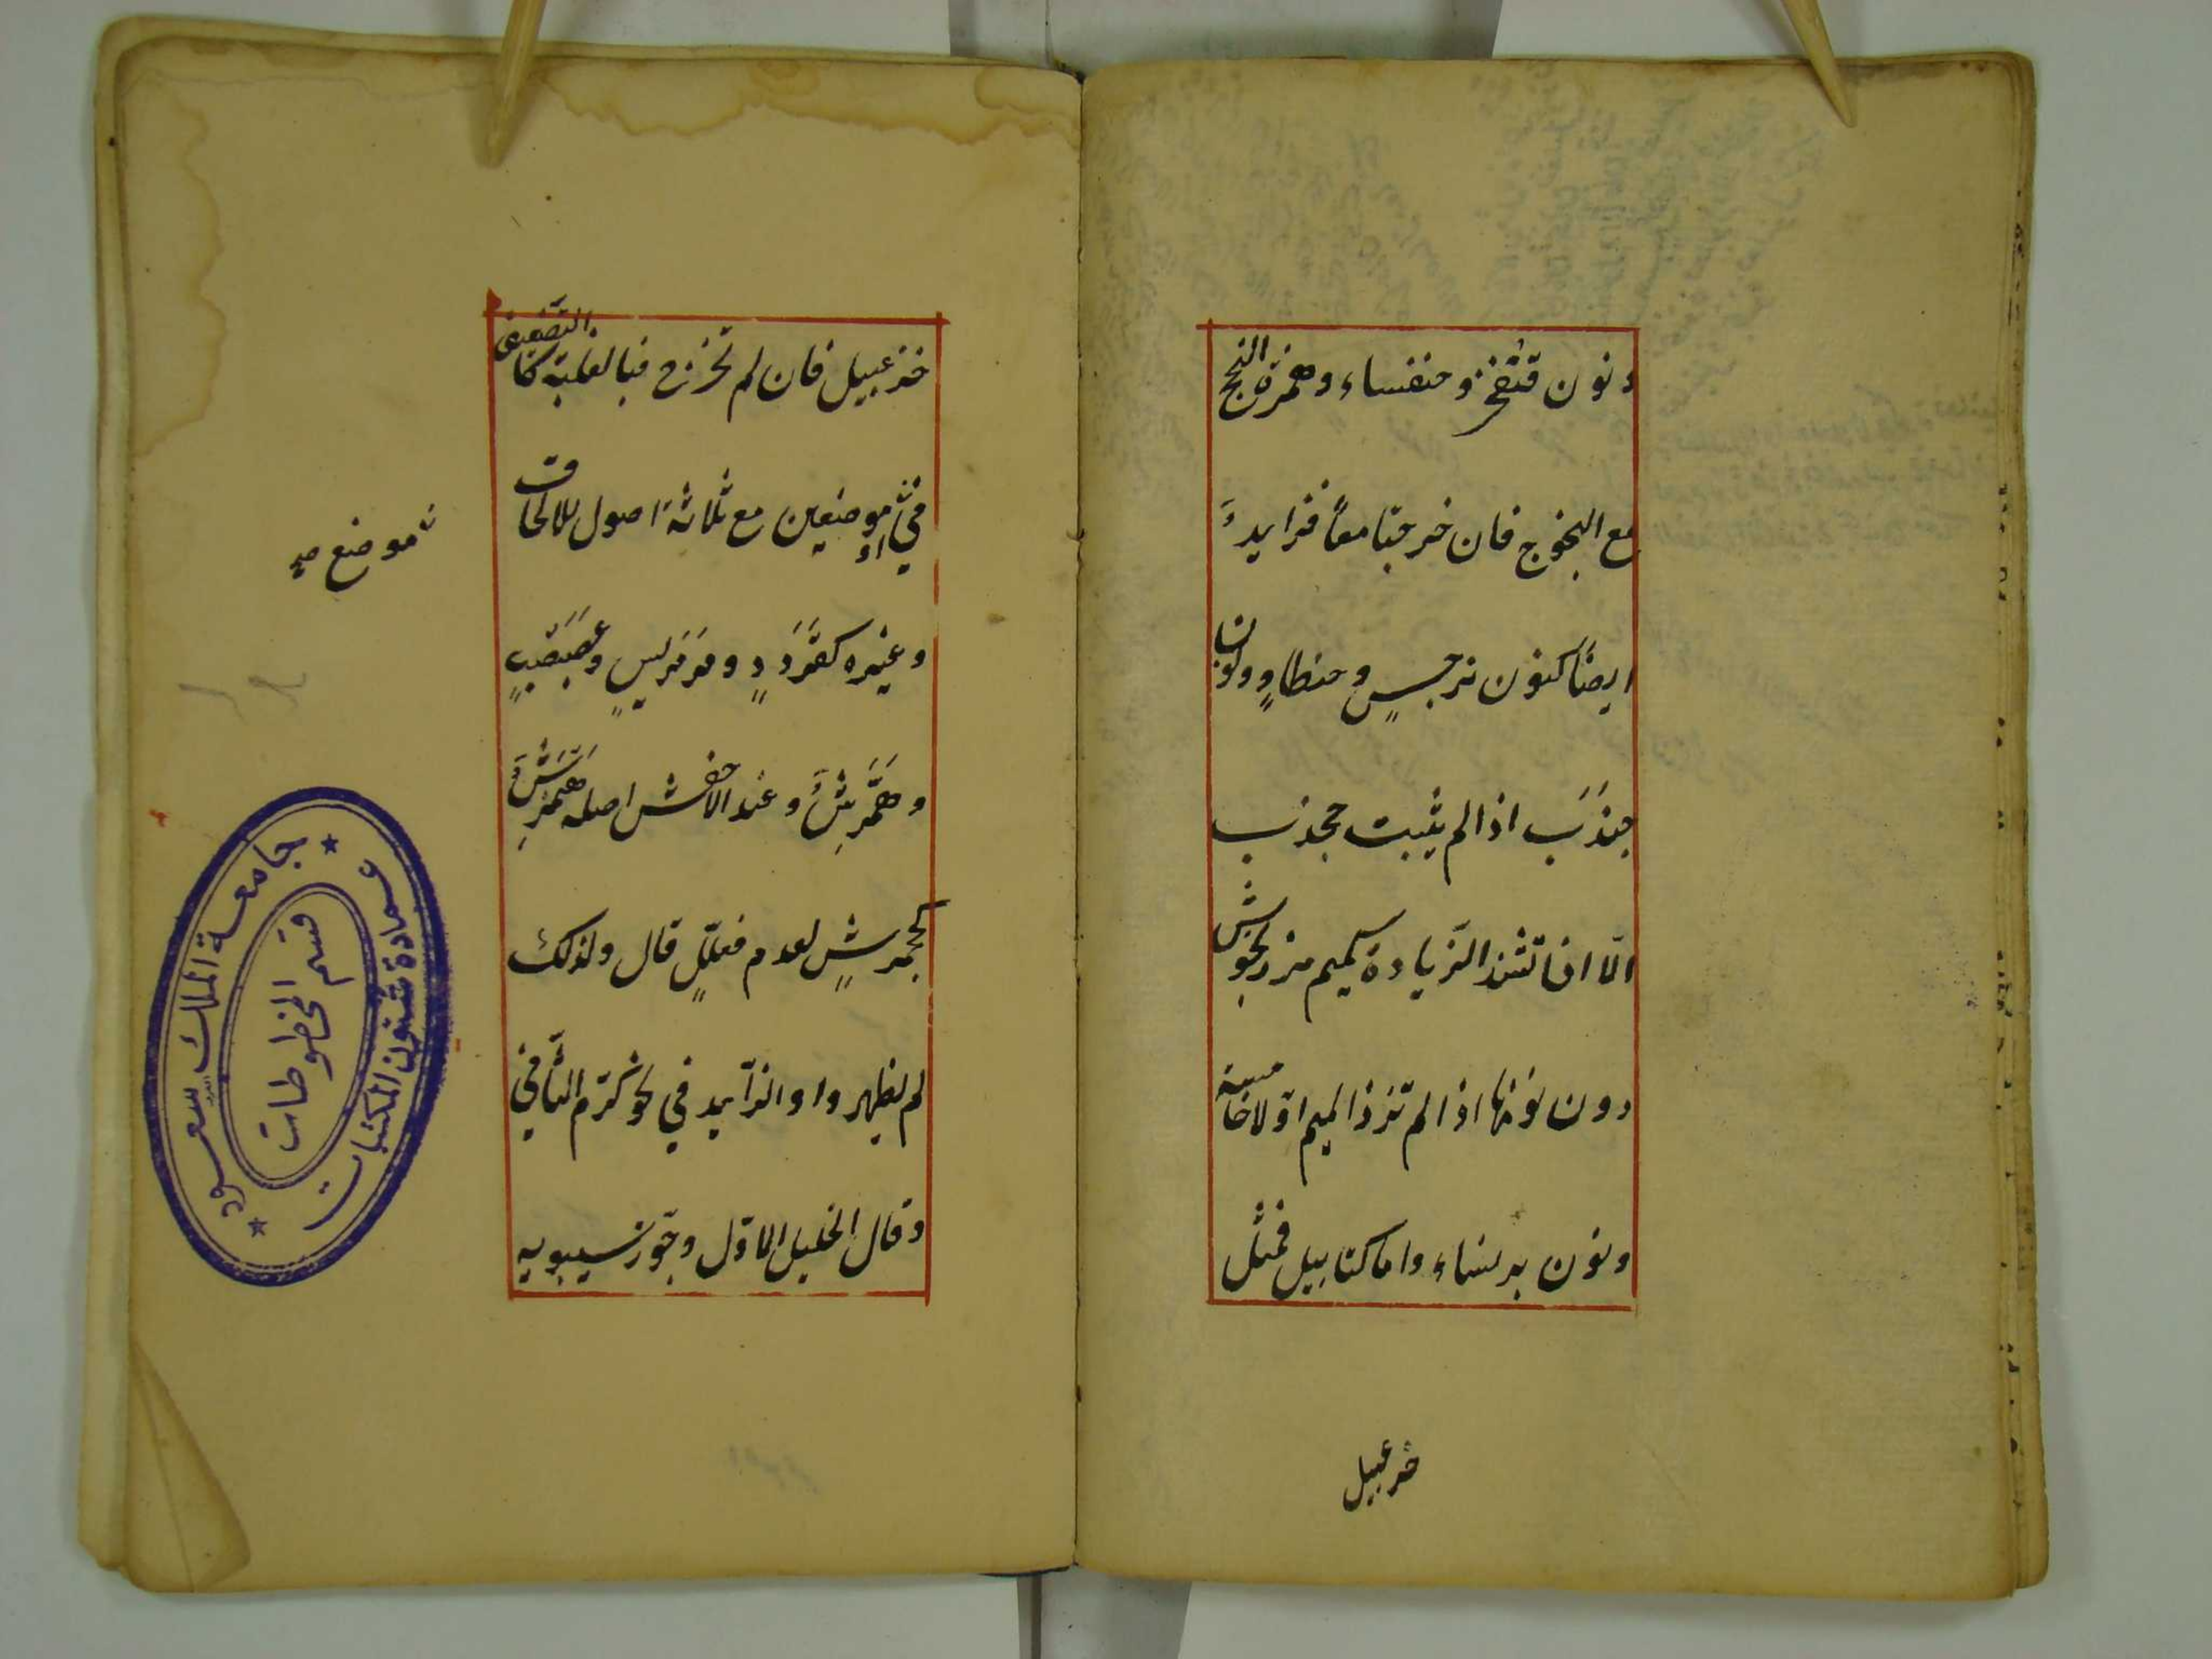 ونون قنفخر وخنفساء وهمزة النجج
مع النجوج فان خرجتا معاً فزايد
ايضاً كنون نرجسٍ وحنطاوٍ ونون
جندَب اذا لم يثبت جخدب
الّا ان تشذ الزّيادة كميم مرزنجوش
دون نونها اذا لم تزذ الميم اوّلا خامسة
ونون برنساء واما كنابيل فمثل
خزعبيل
خزعبيل فان لم تخرج فبالغلبة كالتّضعيف
في موضعين مع ثلاثة اصول للالحاق
وغيره كقَردَدٍ ومَرمَريسٍ وعصَبصَبٍ
وهَمَّرِشٌ وعند الاخفش اصله هَنمَرِشٌ
كجحمرشٍ لعدم فعّللٍ قال ولذلك
لم يظهر وا والزّايد في نحو كرّم الثّاني
وقال الخليل الاوّل وجوّز سيبويه
موضع صح
جامعة الملك سعود
عمادة شئون المكتبات
قسم المخطوطات